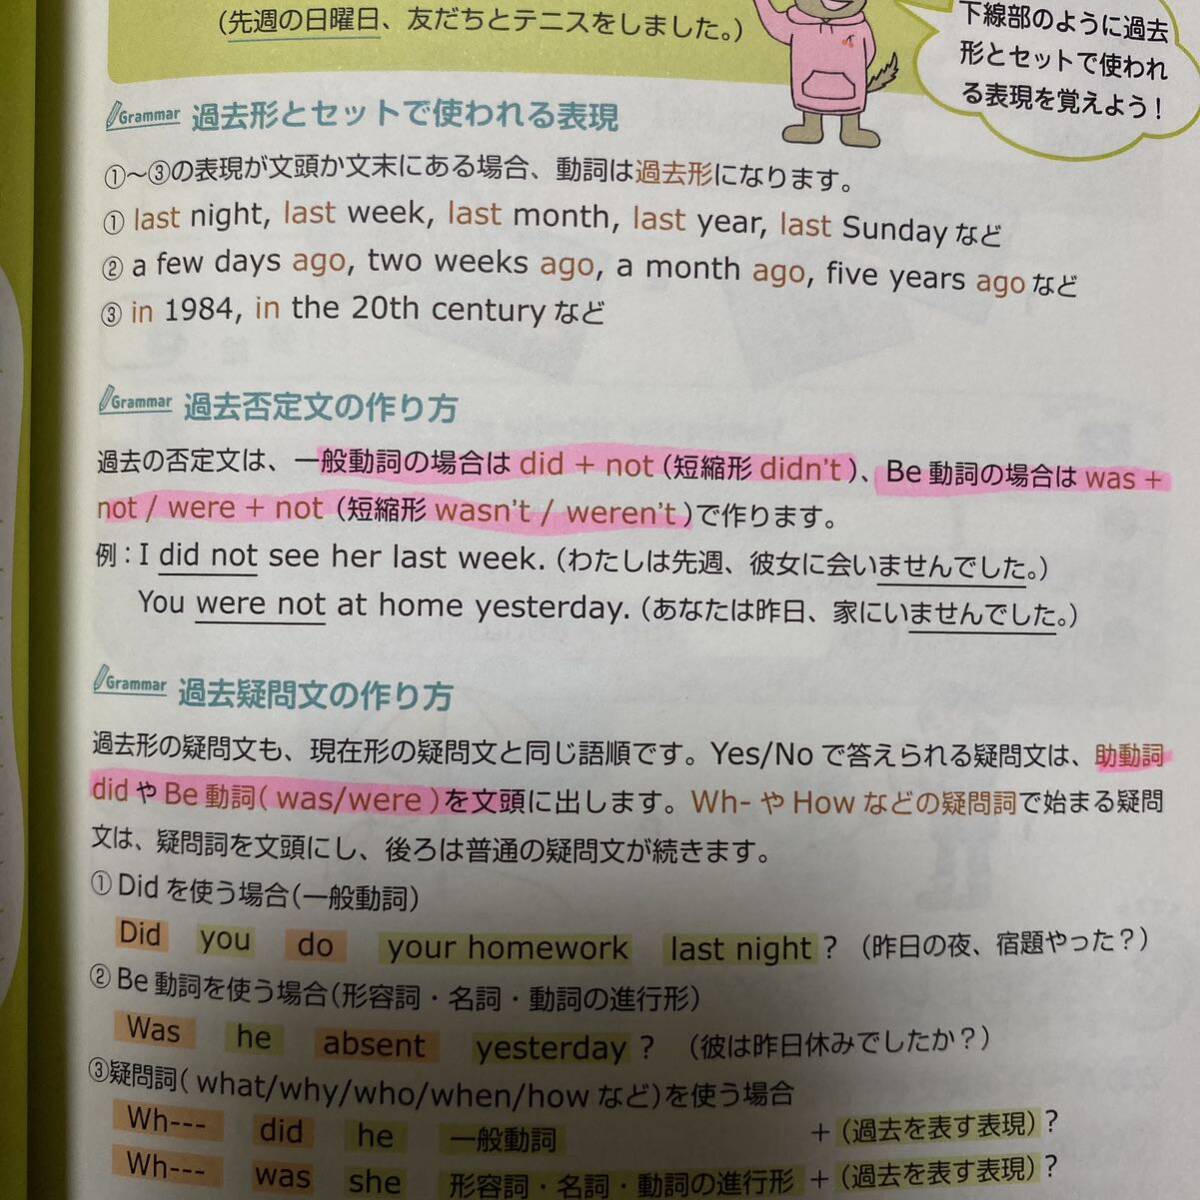 (先週の日曜日、友だちとテニスをしました。)
下線部のように過去
形とセットで使われ
る表現を覚えよう!
Grammar 過去形とセットで使われる表現
①〜③の表現が文頭か文末にある場合、動詞は過去形になります。
① last night, last week, last month, last year, last Sunday など
② a few days ago, two weeks ago, a month ago, five years ago など
③ in 1984, in the 20th century など
Grammar 過去否定文の作り方
過去の否定文は、一般動詞の場合は did + not (短縮形 didn't)、Be 動詞の場合は was +
not / were + not (短縮形 wasn't / weren't)で作ります。
例:I did not see her last week. (わたしは先週、彼女に会いませんでした。)
You were not at home yesterday. (あなたは昨日、家にいませんでした。)
Grammar 過去疑問文の作り方
過去形の疑問文も、現在形の疑問文と同じ語順です。Yes/No で答えられる疑問文は、助動詞
did や Be 動詞( was/were )を文頭に出します。Wh- や How などの疑問詞で始まる疑問
文は、疑問詞を文頭にし、後ろは普通の疑問文が続きます。
① Did を使う場合(一般動詞)
Did you do your homework last night ? (昨日の夜、宿題やった?)
② Be 動詞を使う場合(形容詞・名詞・動詞の進行形)
Was he absent yesterday ? (彼は昨日休みでしたか?)
③疑問詞( what/why/who/when/how など)を使う場合
Wh--- did he 一般動詞 + (過去を表す表現) ?
Wh--- was she 形容詞・名詞・動詞の進行形 + (過去を表す表現) ?